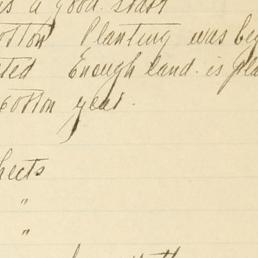 is a good start
Cotton Planting was beg
ted Enough land is pla
Cotton year.
heets
"
"